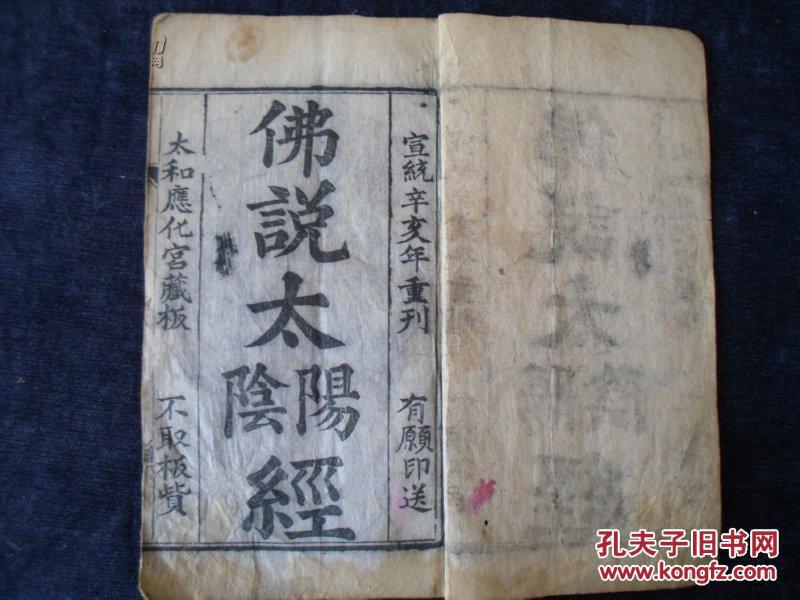 宣統辛亥年重刊 有願印送
佛説太
陽陰
經
太和應化宮藏板 不取板貲
孔夫子旧书网
www.kongfz.com